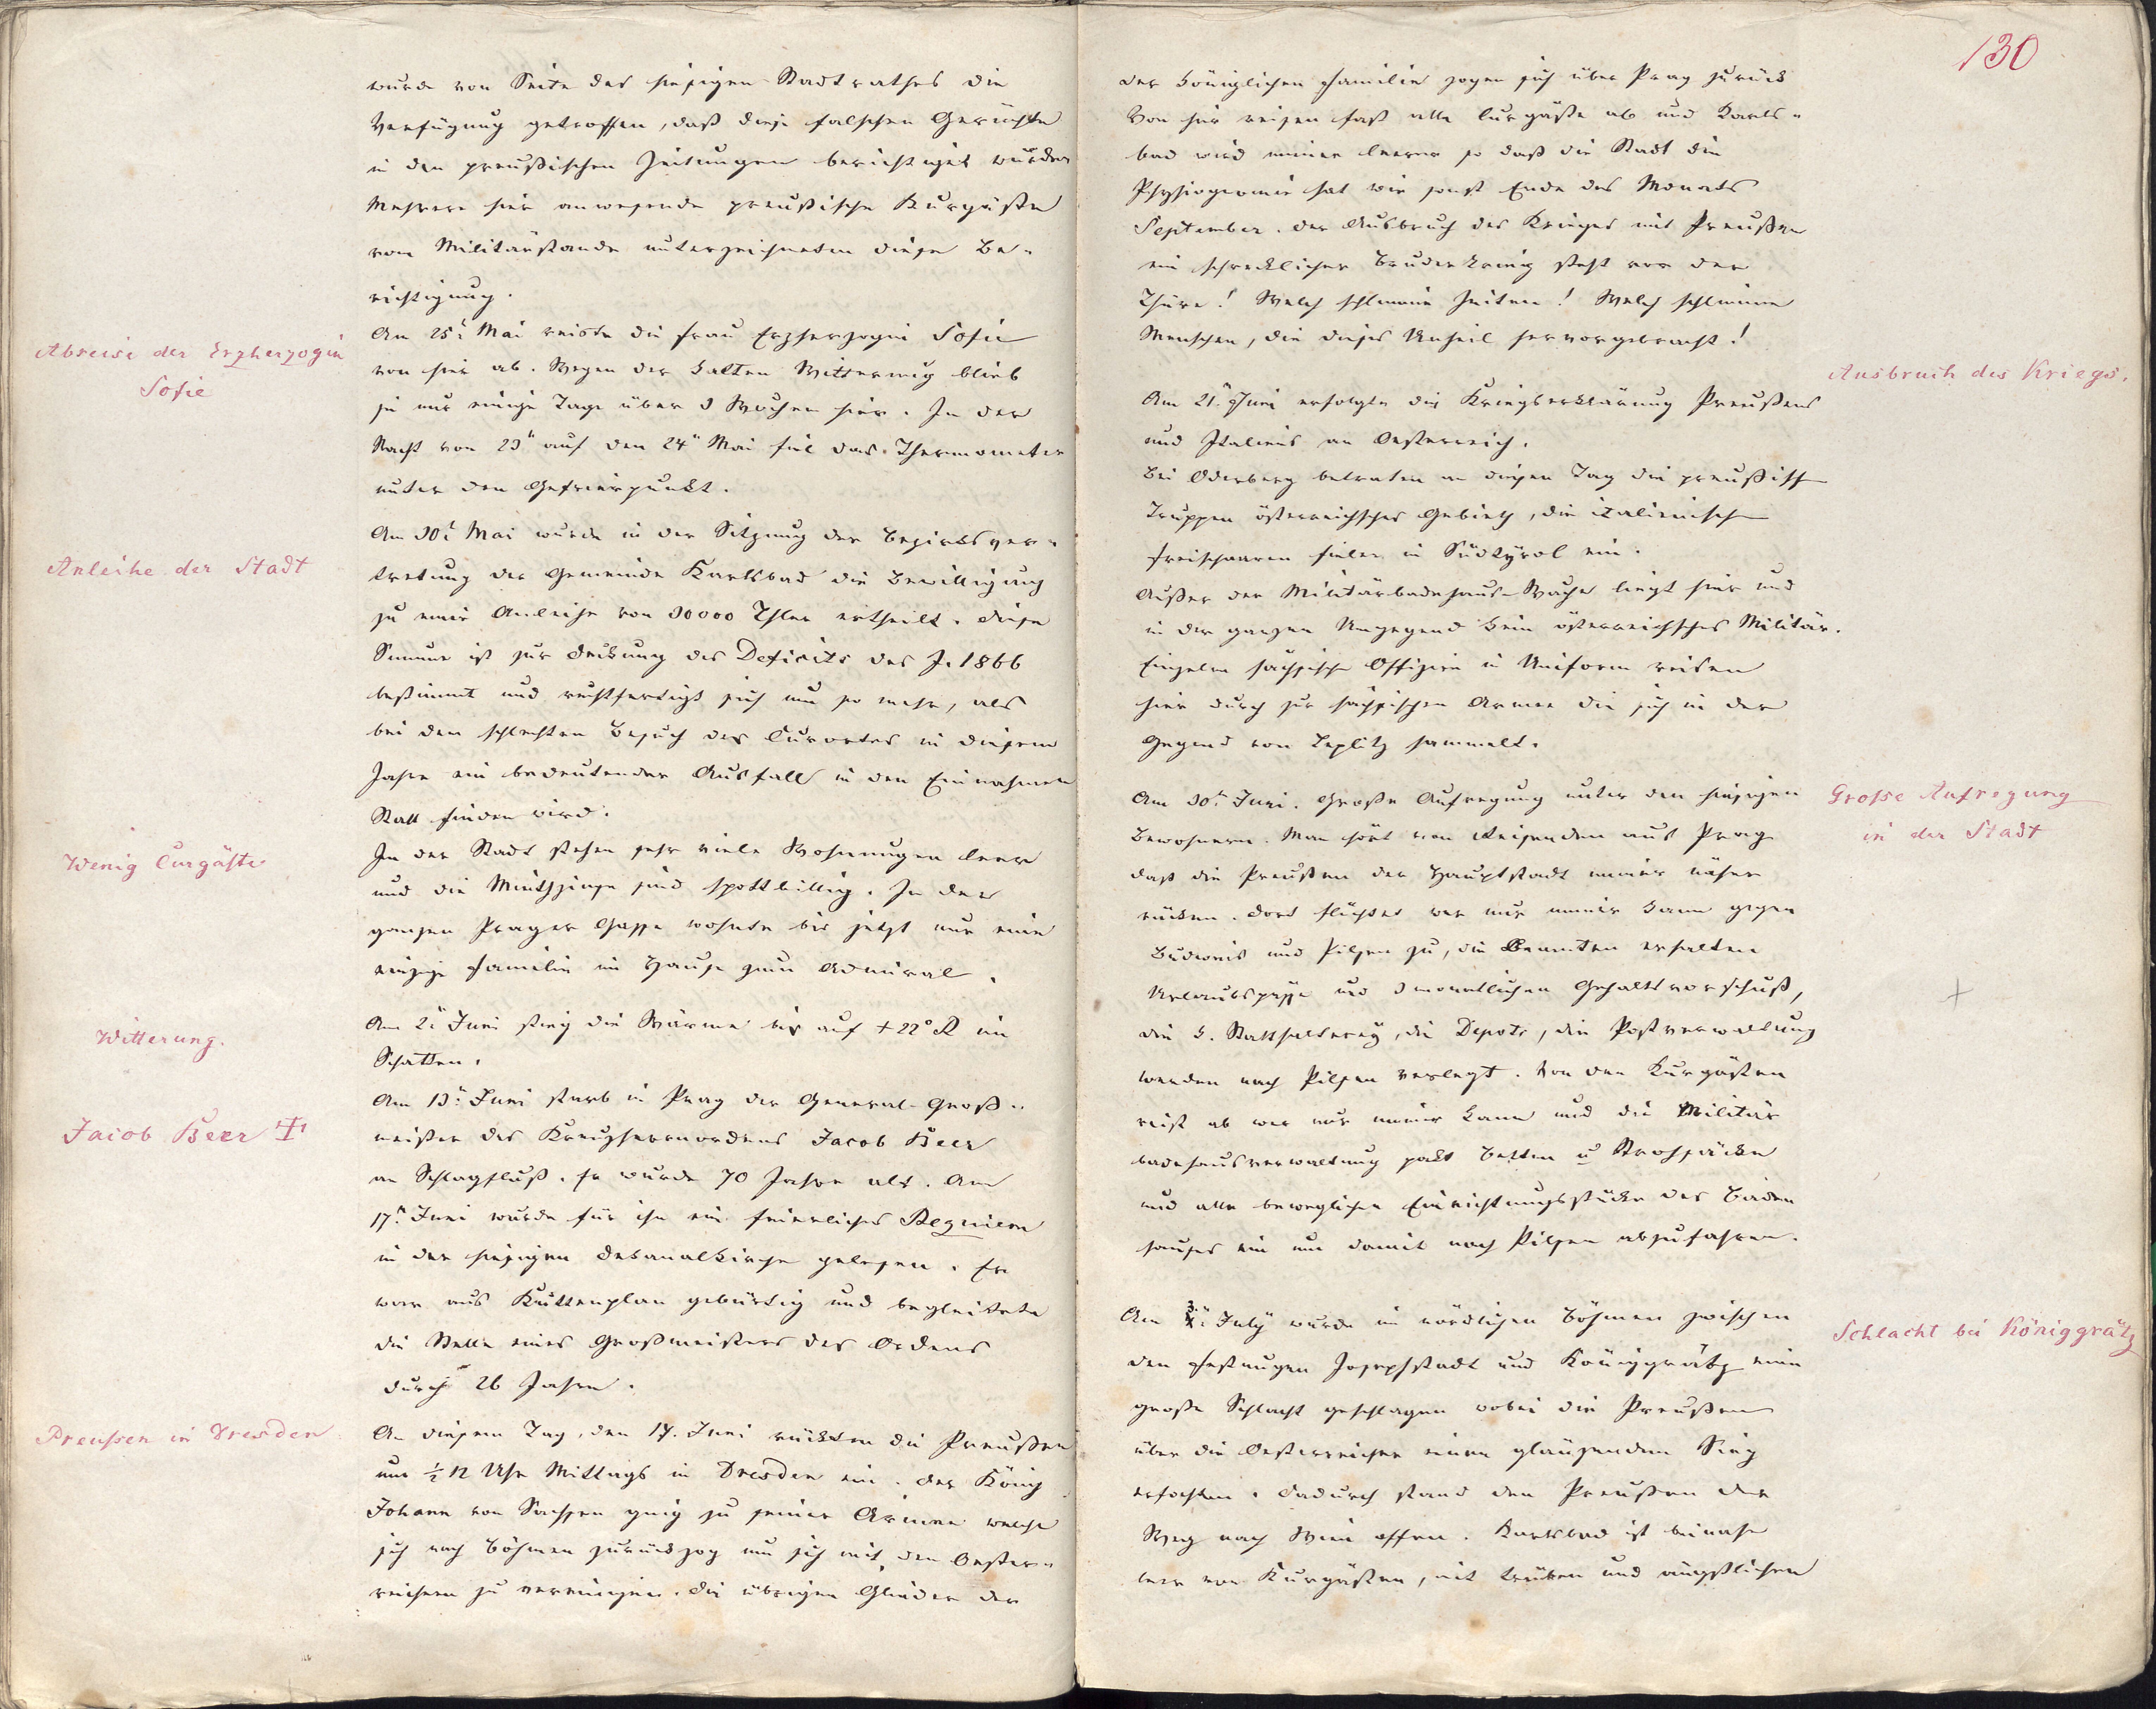 wurde von Seite des hiesigen Stadtrathes die
Verfügung getroffen, daß diese falschen Gerüchte
in den preußischen Zeitungen berichtiget würden
Mehrere hier anwesende preußische Kurgäste
vom Militärstande unterzeichneten diese Be-
richtigung.
Abreise der Erzherzogin
Sofie
Am 25t Mai reiste die Frau Erzherzogin Sofie
von hier ab. Wegen der kalten Witterung blieb
sie nur einige Tage über 3 Wochen hier. In der
Nacht von 23" auf den 24" Mai fiel das Thermometer
unter den Gefrierpunkt.
Anleihe der Stadt
Am 30t Mai wurde in der Sitzung der Bezirksver-
tretung der Gemeinde Karlsbad die Bewilligung
zu einer Anleihe von 30000 Thler ertheilt. Diese
Summe ist zur Deckung des Deficits des J. 1866
bestimmt und rechtfertigt sich um so mehr, als
bei dem schlechten Besuch des Curortes in diesem
Jahre ein bedeutender Ausfall in den Einnahmen
Statt finden wird.
Wenig Curgäste
In der Stadt stehen sehr viele Wohnungen leer
und die Miethzinse sind spottbillig. In der
ganzen Prager Gasse wohnte bis jetzt nur eine
einzige Familie im Hause zum Admiral.
Witterung.
Am 2t Juni stieg die Wärme bis auf + 22° R im
Schatten.
Jacob Beer †
Am 13t Juni starb in Prag der General-Groß-
meister des Kreuzherrnordens Jacob Beer
an Schlagfluß. Er wurde 70 Jahre alt. Am
17t Juni wurde für ihn ein feierliches Requiem
in der hiesigen Dekanalkirche gelesen. Er
war aus Kuttenplan gebürtig und begleitete
die Stelle eines Großmeisters des Ordens
durch 26 Jahre.
Preussen in Dresden
An diesem Tag, den 17. Juni rückten die Preußen
um ½ 12 Uhr Mittags in Dresden ein. Der König
Johann von Sachsen ging zu seiner Armee welche
sich nach Böhmen zurückzog um sich mit den Oester-
reichern zu vereinigen. Die übrigen Glieder der
130
der königlichen Familie zogen sich über Prag zurück
Von hier reisen fast alle Curgäste ab und Karls-
bad wird immer leerer so daß die Stadt die
Physiognomie hat wie sonst Ende des Monats
September. Der Ausbruch des Krieges mit Preußen
ein schrecklicher Bruderkrieg steht vor der
Thüre! Welch schlimme Zeiten! Welch schlimme
Menschen, die dieses Unheil hervorgebracht!
Ausbruch des Kriegs.
Am 21t Juni erfolgte die Kriegserklärung Preußens
und Italiens an Oesterreich.
Bei Oderberg betraten an diesen Tag die preußisch
Truppen österreichisches Gebieth, die italienische
Freischaaren fielen in Südtyrol ein.
Außer der Militärbadehaus-Wache liegt hier und
in der ganzen Umgegend kein österreichisches Militär.
Einzelne sächsische Offiziere in Uniform reisen
hier durch zur sächsischen Armee die sich in der
Gegend von Teplitz sammelt.
Grosse Aufregung
in der Stadt
Am 30t Juni. Große Aufregung unter den hiesigen
Bewohnern. Man hört von Reisenden aus Prag
daß die Preußen der Hauptstadt immer näher
rücken. Dort flüchtet wer nur immer kann gegen
Budweis und Pilsen zu, die Beamten erhalten
Urlaubspässe und 3 monatlichen Gehaltsvorschuß,
die k. Statthalterey, die Depots, die Postverwaltung
werden nach Pilsen verlegt. Von den Kurgästen
reist ab wer nur immer kann und die Militär
badehausverwaltung packt Betten u Strohsäcke
und alle beweglichen Einrichtungsstücke des Bade
hauses ein um damit nach Pilsen abzufahren.
Schlacht bei Königgrätz
Am 3t July wurde im nördlichen Böhmen zwischen
den Festungen Josephstadt und Königgrätz eine
große Schlacht geschlagen wobei die Preußen
über die Oesterreicher einen glänzenden Sieg
erfochten. Dadurch stand den Preußen der
Weg nach Wien offen. Karlsbad ist beinahe
leer von Kurgästen, mit trüben und ängstlichen